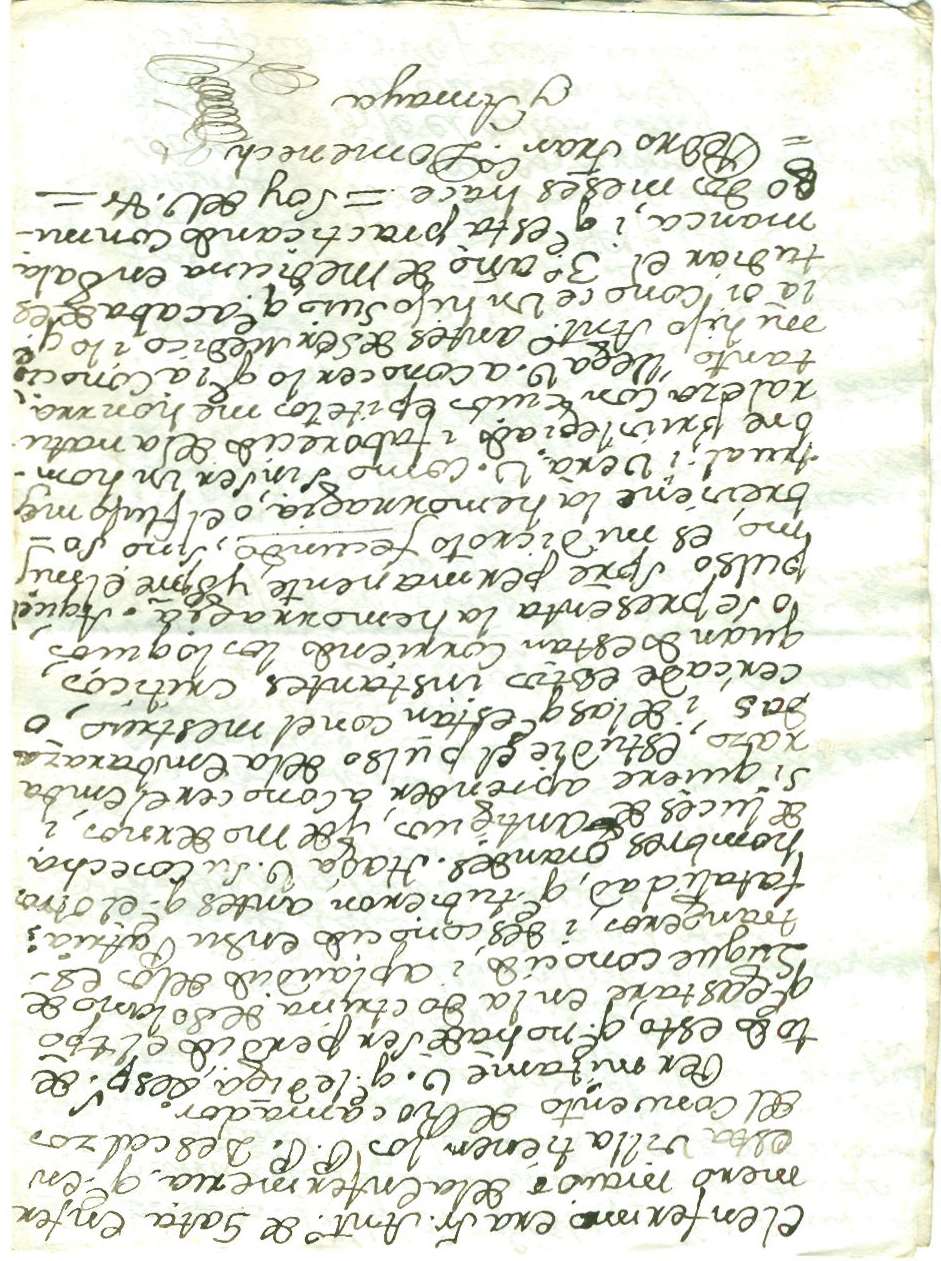 el enfermo era Fr. Antº. de Gata Enfer
mero maior de la enfermeria q. en
esta villa tienen los P. P. Descalzos
del Convento de Rocamador.
Permitame V. q. le diga, desp.s de
todo esto, q. no ha de ser perdido el tpo
q. gastare en la doctrina de Solano de
Luque conocido i aplaudido de los es-
trangeros i desconocido en su Patria:
fatalidad, q. tubieron antes q. el otros
hombres grandes. Haga V. su cosecha
de luces de antiguos, y de modernos, i
si quiere aprender a conocer el emba
razo, estudie el pulso de la embaraza
das, i de las q. estan con el mestruo, o
cerca de estos instantes criticos,
quando estan corriendo los loquios,
o se presenta la hemorragia. Aquel
pulso spre permanente, y spre el mis
mo, es mi dicroto fecundo, sino so-
breviene la hemorragia, o el flujo mes
trual; i vera V. como sin ser un hom-
bre privilegiado i faborecido de la natu
raleza con cuios epitetos me honrra
tanto, llega V. a conocer lo q. la conocio
mi hijo Ant. antes de ser Medico i lo q.
la oi conoce un hijo suio q. acaba de es
tudiar el 3º año de Medicina en Sala
manca, i q. esta practicando conmi-
go dos meses hace. = Soy de V. &ª =
= Pedro Fran.co Domenech
y Amaya